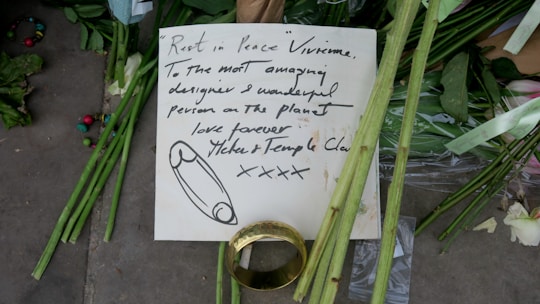 "Rest in Peace" Vivienne.
To the most amazing
designer & wonderful
person on the planet
love forever
& Temple Cla
xxxx